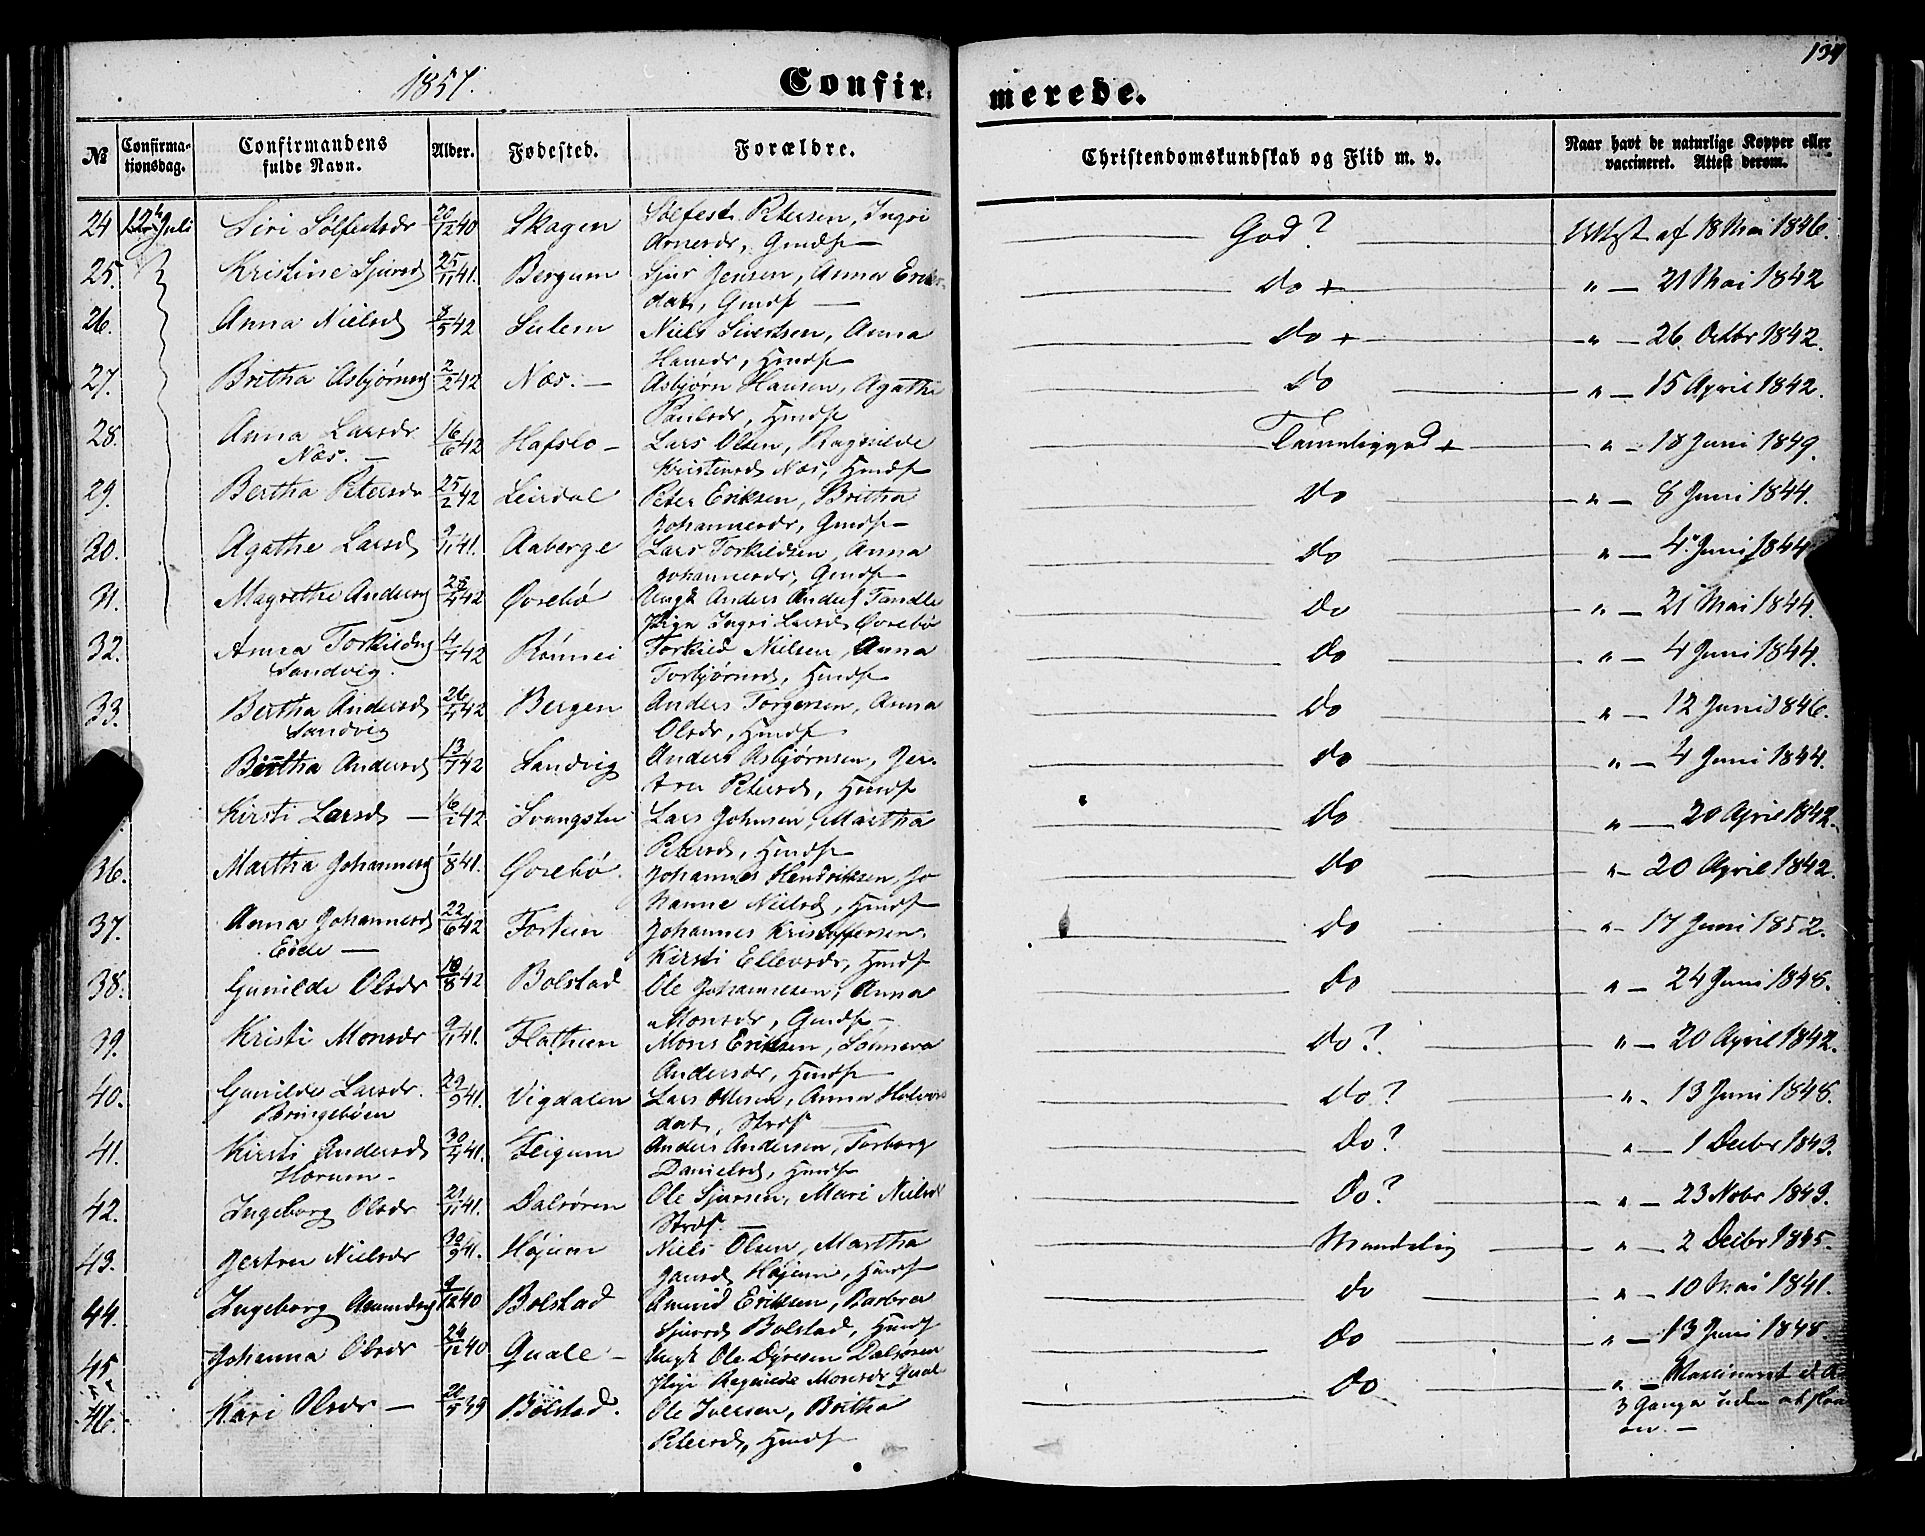 1857.
Confir-
merede.
134
№
Confirma-
tionsdag.
Confirmandens
fulde Navn.
Alder.
Fødested.
Forældre.
Christendomskundskab og Flid m. v.
Naar havt de naturlige Kopper eller
vaccineret. Attest derom.
24 12te Juli Siri Solfestsdr 20/12 40 Skagen Solfest Petersen, Ingri God? Attst af 18 Mai 1846.
Arnesdr, Gmdsf
25. Kristine Sjursd 25/11 41. Bergum Sjur Jensen, Anna Eriks- do + " — 21 Mai 1842
datr, Gmdsf
26. Anna Nielsd 9/5 42 Sulem Niels Sivertsen, Anna do + " — 26 Octbr 1842.
Hansdr, Hmdsf
27. Britha Asbjørnsd 2/2 42 Næs. Asbjørn Hansen, Agathe do " — 15 April 1842.
Paulsdr, Hmdsf
28. Anna Larsdr 16/6 42 Hafslo Lars Olsen, Ragnilde Temmeliggod + " — 18 Juni 1849.
Næs. Kristensd Næs, Hmdsf
29. Bertha Petersdr 25/2 42 Leirdal Peter Eriksen, Britha do " — 8 Juni 1844.
Johannesdr, Gmdsf
30. Agathe Larsd 9/11 41. Aaberge Lars Torkildsen, Anna do " — 4 Juni 1844
Johannesdr, Gmdsf
31. Magrethe Andersd 25/4 42 Øvrebø Ungk Anders Anders Tandle do " — 21 Mai 1844.
Pige Ingri Larsd Øvrebø
32. Anna Torkildsd 4/4 42 Rønnei Torkild Nielsen, Anna do " — 4 Juni 1844.
Sandvig. Torbjørnsd, Hmdsf
33. Bertha Andersd 26/4 42 Bergen Anders Torgersen, Anna do " — 12 Juni 1846.
Sandvig Olsdr, Hmdsf
Bertha Andersd 13/7 42 Sandvig Anders Asbjørnsen, Jer- do " — 4 Juni 1844.
tru Petersd, Hmdsf
Kirsti Larsd 16/2 42 Svangstu Lars Johnsen, Martha do " — 20 April 1842
Petersd, Hmdsf
36. Martha Johannesd 1/8 41. Øvrebø. Johannes Hendriksen, Jo do " — 20 April 1842.
hanne Nielsd, Hmdsf
37. Anna Johannesd 22/6 42 Fortun Johannes Kristoffersen, do " — 17 Juni 1852.
Eide Kirsti Ellevsdr, Hmdsf
38. Gunilde Olsdr 18/8 42 Bolstad Ole Johannesen, Anna do " — 24 Juni 1848.
Monsdr, Gmdsf
39. Kristi Monsdr 9/11 41. Flathun Mons Eriksen, Sønneva do? " — 20 April 1842.
Andersdr, Hmdsf
40. Gunilde Larsdr 29/9 41. Vigdalen Lars Ottesen, Anna Halvors do? " — 13 Juni 1848.
Bringebøen datr, Strdsf
41. Kirsti Andersd 30/4 41. Feigum Anders Andersen, Torborg do? " — 1 Decbr 1843.
Horum Danielsd, Hmdsf
42. Ingeborg Olsdr 21/11 41. Dalsøren Ole Sjursen, Mari Nielsd do? " — 23 Novbr 1843.
Strdsf.
43. Jertru Nielsdr 30/9 41. Højum Niels Olsen, Martha Maadelig " — 2 Decbr 1845.
Jansd Højum, Hmdsf
44. Ingeborg Amundsd 9/12 40 Bolstad Amund Eriksen, Barbra do " — 10 Mai 1841.
Sjursd Bolstad, Hmdsf
45 Johanna Olsdr 24/12 40 Quale Ungk Ole Dyresen Dalsøren do " — 13 Juni 1848.
Pige Ragnilde Monsdr Quale
46. Kari Olsdr 20/5 39 Bolstad. Ole Iversen, Britha do " — Vaccineret
Petersd, Hmdsf 3 Gange uden at slaa
an.